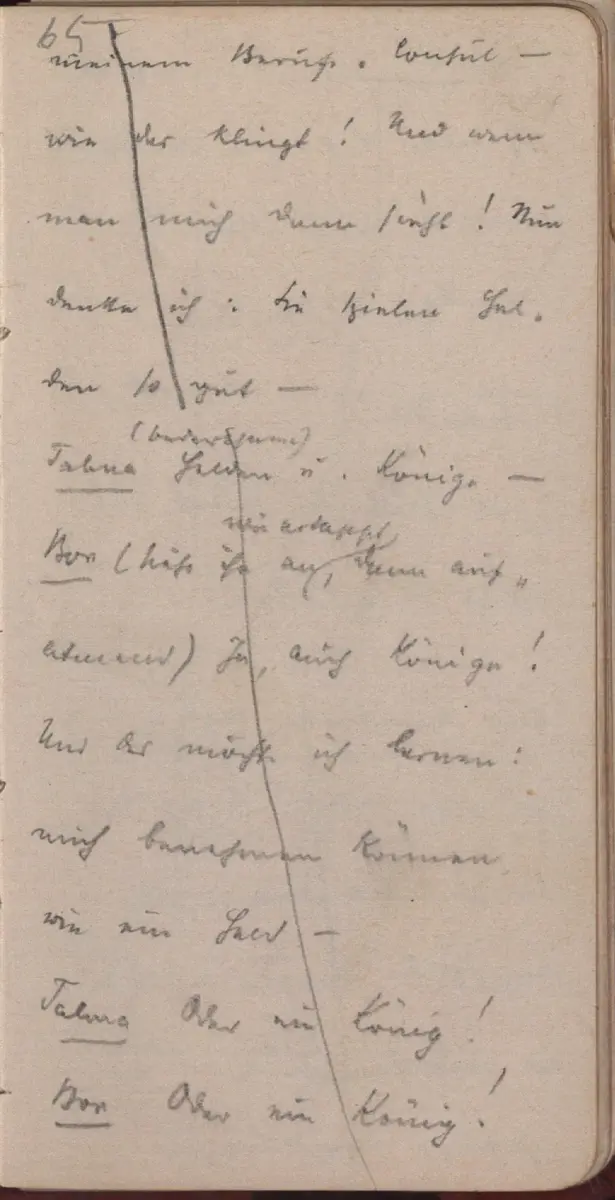 65
meinem Beruf. Consul —
wie das klingt! Und wenn
man mich dann sieht! Nun
denke ich: Sie spielen Hel-
den so gut —
(bedeutsam)
Talma Helden u. Könige —
wie ertappt
Bon (sieht ihn an, dann auf-
atmend) Ja, auch Könige!
Und das möcht ich lernen:
mich benehmen können
wie ein Held —
Talma Oder ein König!
Bon Oder ein König!